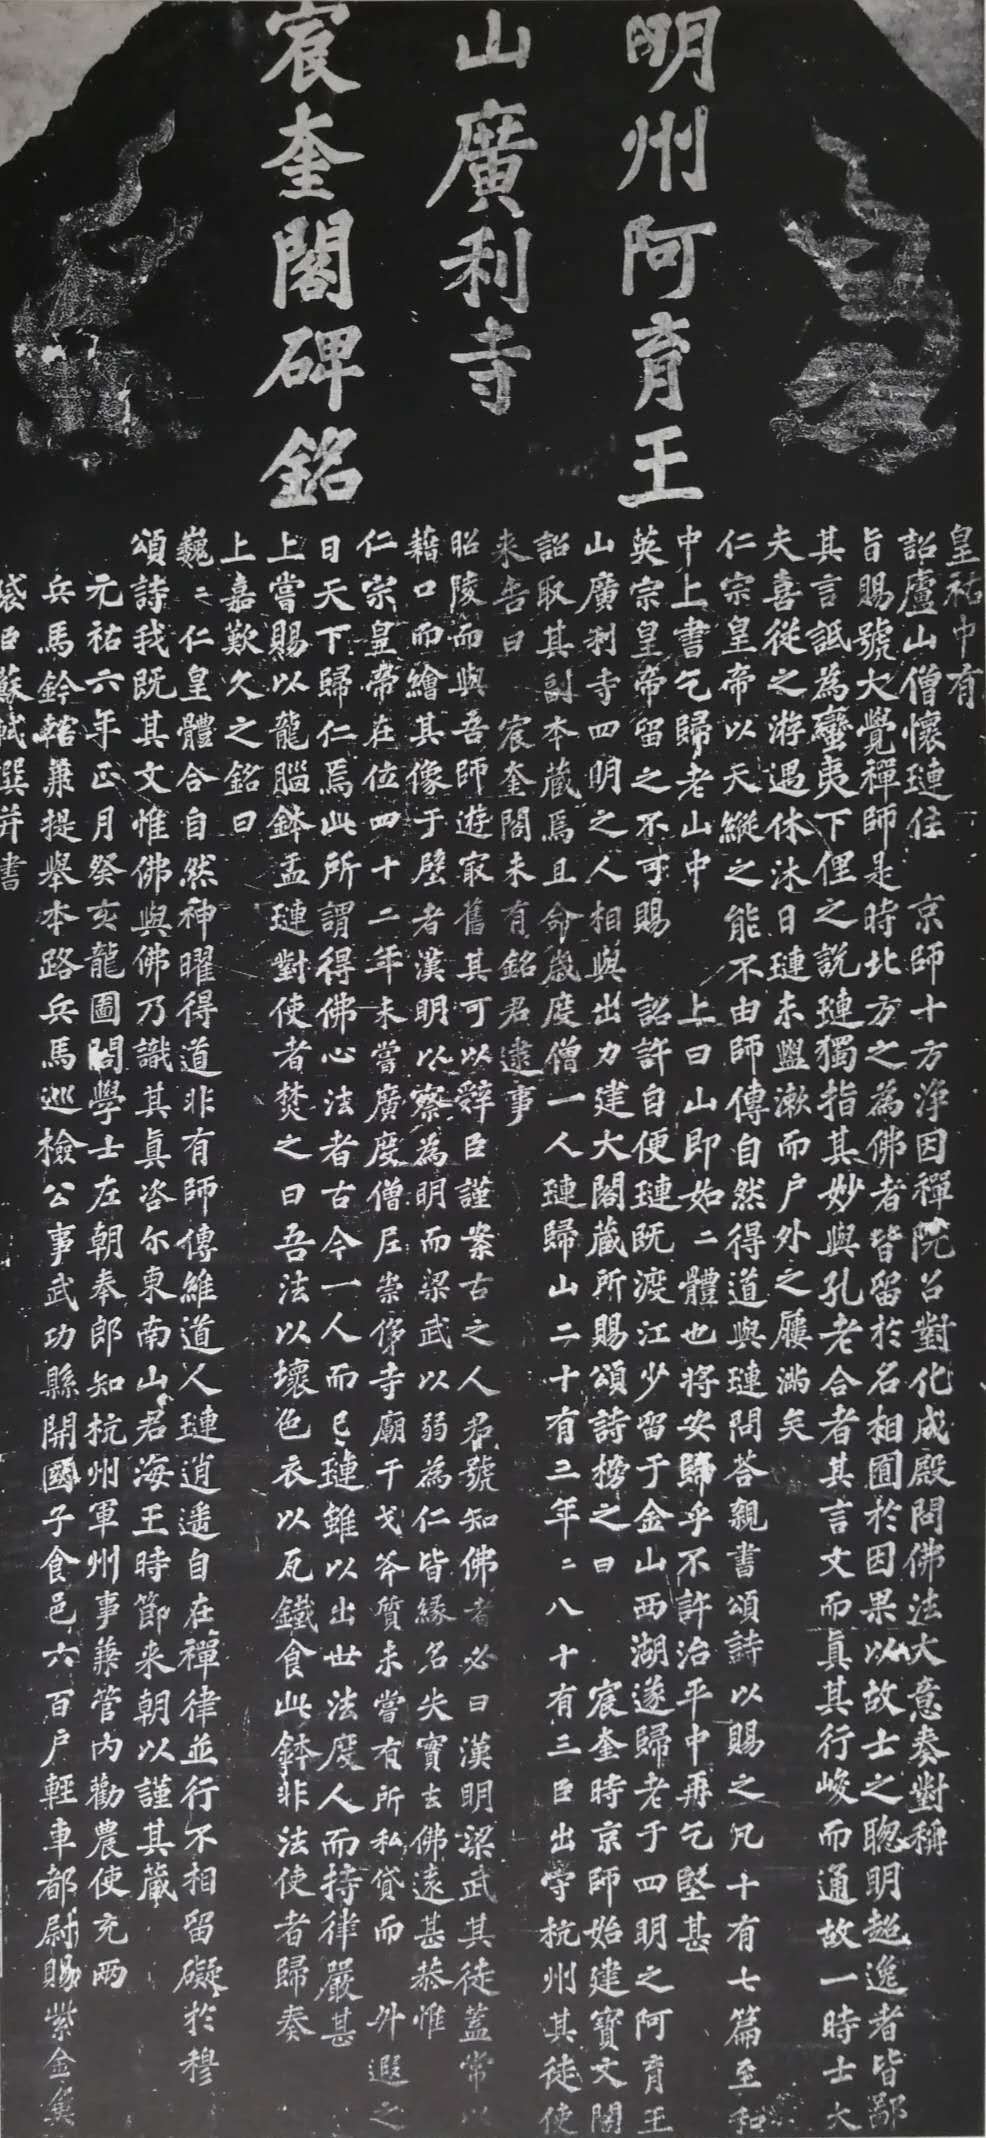 明州阿育王
山廣利寺
宸奎閣碑銘
皇祐中有
詔廬山僧懷璉住 京師十方淨因禪院召對化成殿問佛法大意奏對稱
旨賜號大覺禪師是時北方之為佛者皆留於名相囿於因果以故士之聰明超逸者皆鄙
其言詆為蠻夷下俚之説璉獨指其妙與孔老合者其言文而真其行峻而通故一時士大
夫喜從之游遇休沐日璉未盥漱而户外之屨滿矣
仁宗皇帝以天縱之能不由師傳自然得道與璉問荅親書頌詩以賜之凡十有七篇至和
中上書乞歸老山中 上曰山即如二體也將安歸乎不許治平中再乞堅甚
英宗皇帝留之不可賜 詔許自便璉既渡江少留于金山西湖遂歸老于四明之阿育王
山廣利寺四明之人相與出力建大閣藏所賜頌詩榜之曰 宸奎時京師始建寶文閣
詔取其副本藏焉且命歲度僧一人璉歸山二十有三年二八十有三臣出守杭州其徒使
来告曰 宸奎閣未有銘君逮事
昭陵而與吾師遊㝡舊其可以辭臣謹案古之人君號知佛者必曰漢明梁武其徒蓋常以
藉口而繪其像于壁者漢明以察為明而梁武以弱為仁皆緣名失實去佛遠甚恭惟
仁宗皇帝在位四十二年未嘗廣度僧尼崇侈寺廟干戈斧質未嘗有所私貸而 升遐之
日天下歸仁焉此所謂得佛心法者古今一人而已璉雖以出世法度人而持律嚴甚
上嘗賜以龍腦鉢盂璉對使者焚之曰吾法以壞色衣以瓦鐵食此鉢非法使者歸奏
上嘉歎久之銘曰
巍二仁皇體合自然神曜得道非有師傳維道人璉逍遥自在禪律並行不相留礙於穆
頌詩我既其文惟佛與佛乃識其真咨尔東南山君海王時節来朝以謹其藏
元祐六年正月癸亥龍圖閣學士左朝奉郎知杭州軍州事兼管内勸農使充兩
兵馬鈐轄兼提舉本路兵馬巡檢公事武功縣開國子食邑六百户輕車都尉賜紫金魚
袋臣蘇軾撰并書